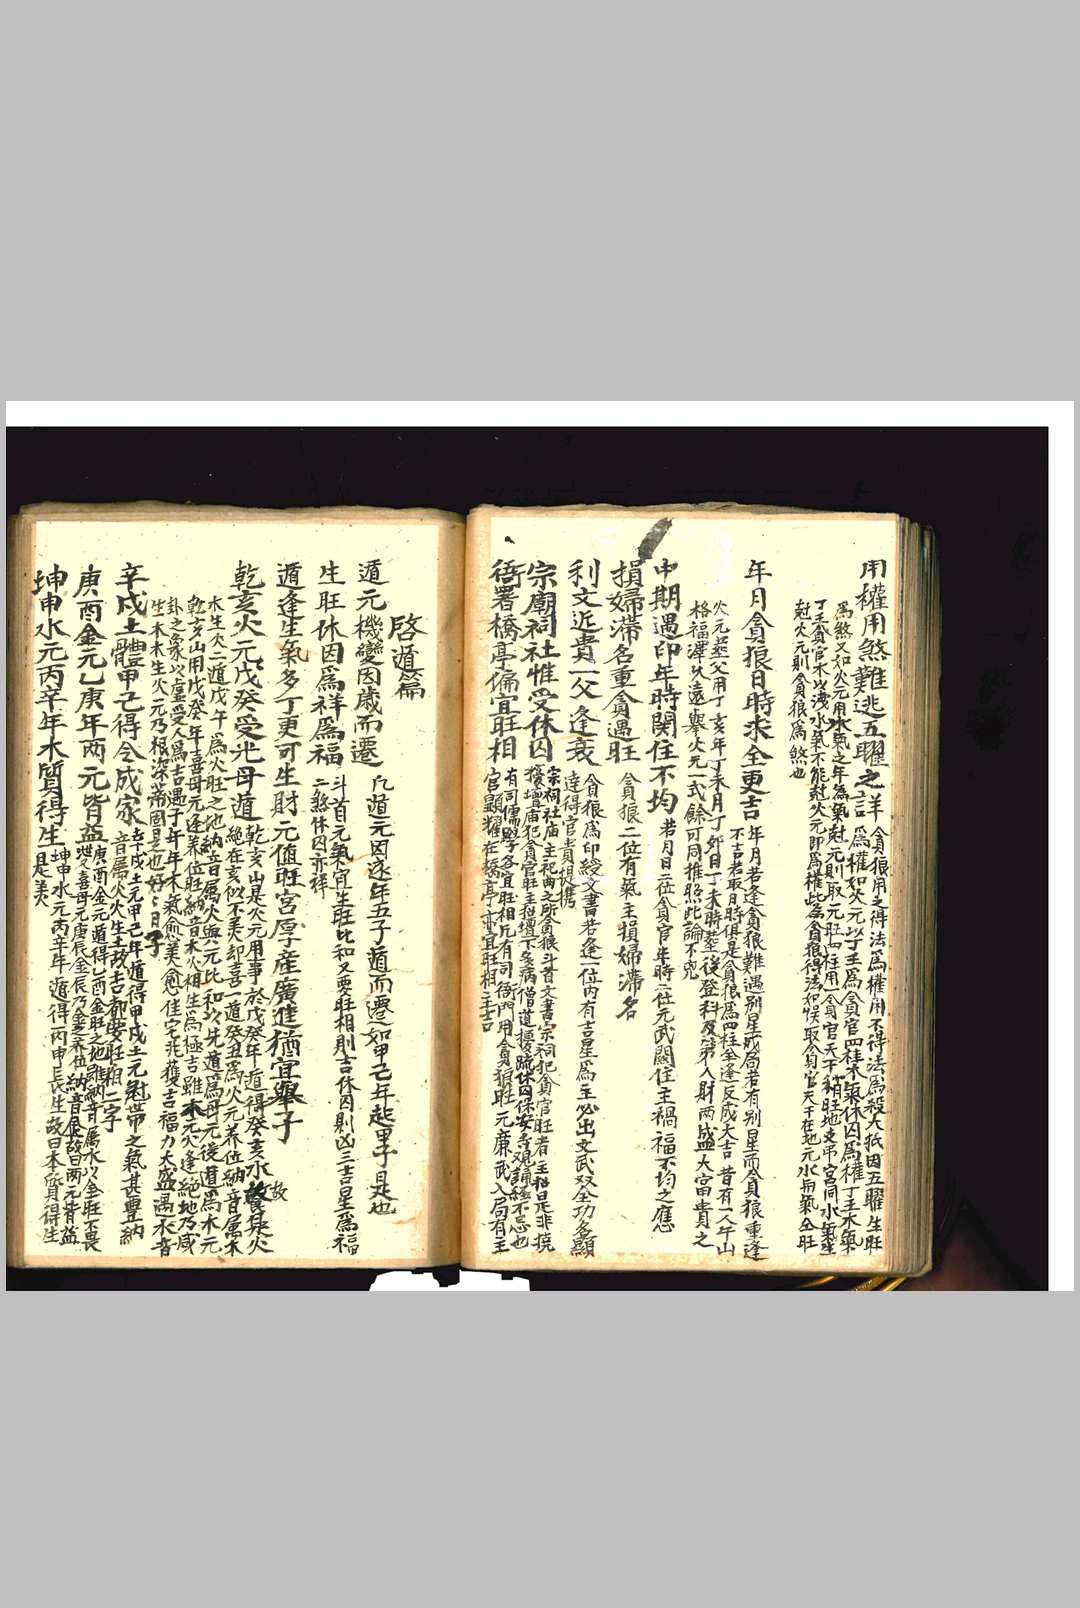 用權用煞難逃五曜之詳
貪狼用之得法為權用不得法為殺大抵因五曜生旺
為權如火元以丁壬為貪官四柱木氣休囚為權丁壬木氣
為煞又如火元用水氣之年為氣尅元則取元旺四柱用貪官天干
丁壬貪官木以洩水氣不能尅火元即為權此為貪狼得法如候取
尅火元則貪狼為煞也
年月貪狼日時求全更吉
年月若逢貪狼難遇别星成局若有别星而貪狼重逢
不吉若取日時俱是貪狼為四柱全逢反成大吉昔有一人午山
火元葬父用丁亥年丁未月丁卯日丁未時葬後登科及第人財兩盛大富貴之
格福澤久遠舉火元一式餘可同推照此論不兇
中期遇印年時関住不均
若月日二位貪官年時二位元武關住主禍福不均之應
損婦滯名重貪遇旺
貪狼二位有氣主損婦滯名
利文近貴一父逢衰
貪狼為印綬文書若逢一位内有吉星為主必出文武双全功名顯
達得官貴提携
宗廟祠社惟受休囚
宗祠社庙主祀典之所貪狼斗首文書宗祠犯貪官旺者主招是非撓
擾壇庙犯貪官旺主招壇下多病僧道
衙署橋亭偏宜旺相
有司儒學各宜旺相凡有司衙門用貪狼旺元廉武入局有主
官顯耀在橋亭亦宜旺相主吉
啓遁篇
遁元機變因歲而遷
凡遁元因逐年五子遁而遷如甲己年起甲子是也
生旺休因為祥為福
斗首元氣宜生旺比和又要旺相則吉休囚則凶三吉星為福
二煞休囚亦祥
遁逢生氣多丁更可生財元值旺宮厚産廣進猶宜舉子
乾亥火元戊癸受光母遁
乾亥山是火元用事於戊癸年遁得癸亥水
絕在亥似不美却喜二遁癸丑為火元养位納音屬木
木生火二遁戊午為火旺之地納音屬火與元比和以先遁為母元後遁為木元
乾亥山用戊癸年喜母元逢养位旺納音木火相生為極吉雖木元火逢絕地乃咸
卦之象以虛受人為吉遇子年年木氣愈美愈佳字兆獲吉福力大盛遇水音
生木木生火元乃根深蒂固是也
辛戌土體甲己得令成家
辛戌土元甲己年遁得甲戌土元冠帶之氣甚豊納
音屬火火生土故吉都安旺相二字
庚酉金元乙庚年两元皆益
庚酉金元遁得乙酉金旺之地雖納音屬水以金旺不畏
洩又喜母元庚辰金辰乃金之养位納音是金故曰两元皆益
坤申水元丙辛年木質得生
坤申水元丙辛年遁得丙申長生故曰本質得生
是美